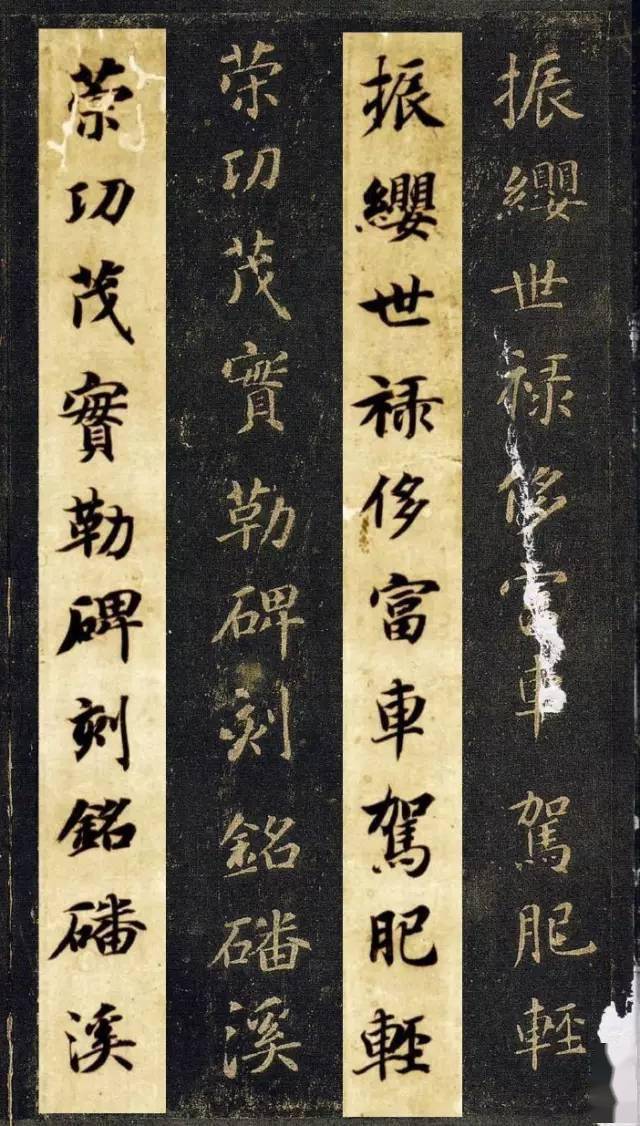 振纓世禄侈富車駕肥輕
振纓世禄侈富車駕肥輕
策功茂實勒碑刻銘磻溪
策功茂實勒碑刻銘磻溪